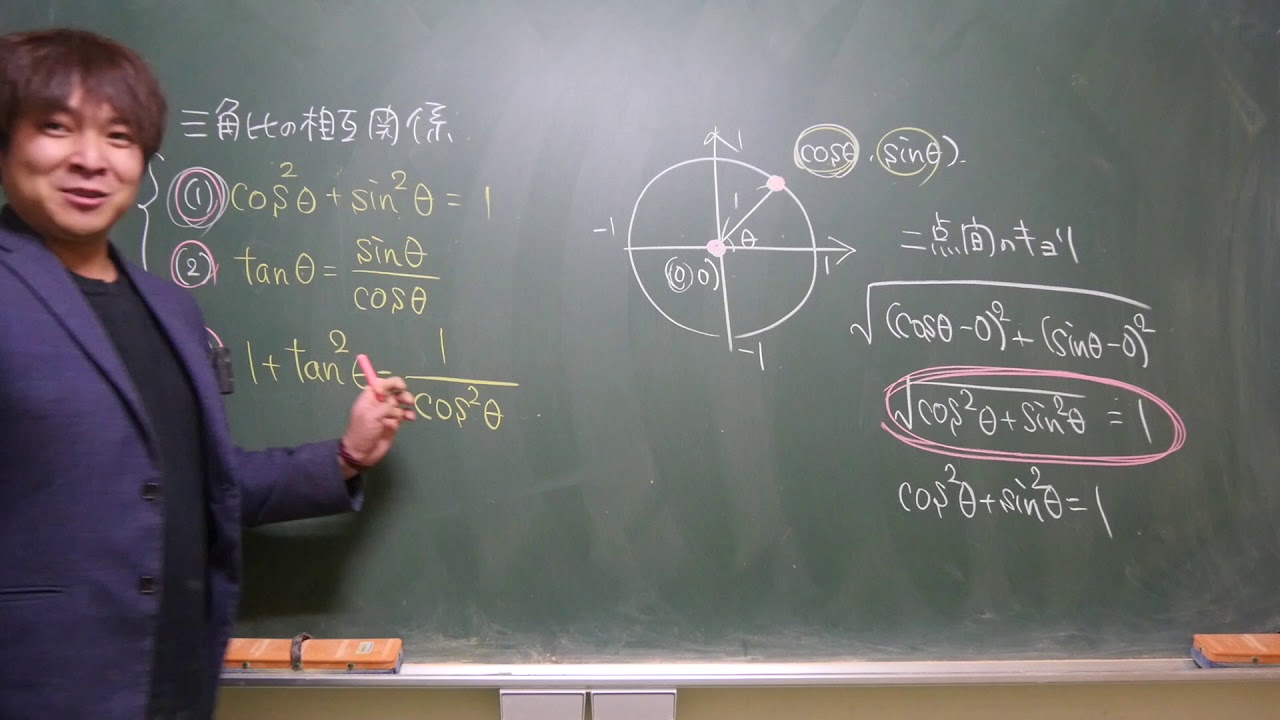 三角比の相互関係
① cos²θ+sin²θ=1
② tanθ=sinθ/cosθ
1+tan²θ=1/cos²θ
1
(cosθ, sinθ)
1
-1
θ
1
(0 0)
-1
二点間のキョリ
√(cosθ-0)²+(sinθ-0)²
√cos²θ+sin²θ=1
cos²θ+sin²θ=1